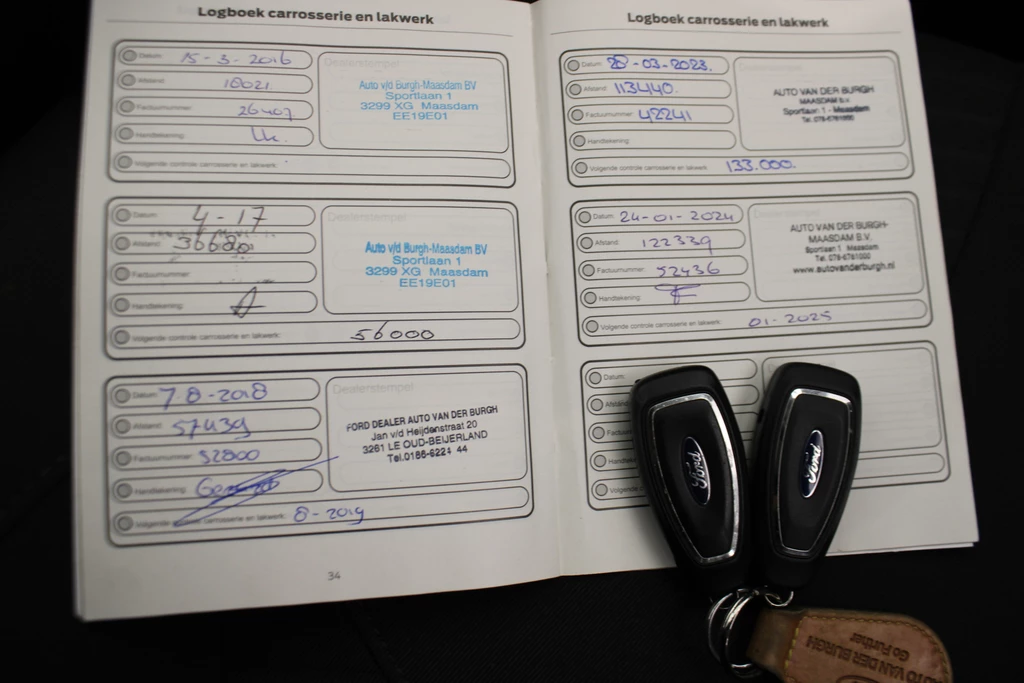 Logboek carrosserie en lakwerk
Datum: 15-3-2016
Afstand: 18021
Factuurnummer: 26407
Handtekening:
Volgende controle carrosserie en lakwerk:
Dealerstempel
Auto v/d Burgh-Maasdam BV
Sportlaan 1
3299 XG Maasdam
EE19E01
Datum: 4-17
Afstand: 36680
Factuurnummer:
Handtekening:
Volgende controle carrosserie en lakwerk: 56000
Dealerstempel
Auto v/d Burgh-Maasdam BV
Sportlaan 1
3299 XG Maasdam
EE19E01
Datum: 7-8-2018
Afstand: 57439
Factuurnummer: 52800
Handtekening:
Volgende controle carrosserie en lakwerk: 8-2019
Dealerstempel
FORD DEALER AUTO VAN DER BURGH
Jan v/d Heijdenstraat 20
3261 LE OUD-BEIJERLAND
Tel.0186-6224 44
34
Logboek carrosserie en lakwerk
Datum: 28-03-2023.
Afstand: 113440.
Factuurnummer: 42241
Handtekening:
Volgende controle carrosserie en lakwerk: 133.000.
AUTO VAN DER BURGH
MAASDAM b.v.
Sportlaan 1 - Maasdam
Tel. 078-6761600
Datum: 24-01-2024
Afstand: 122339
Factuurnummer: 52436
Handtekening:
Volgende controle carrosserie en lakwerk: 01-2025
AUTO VAN DER BURGH-
MAASDAM B.V.
Sportlaan 1 Maasdam
Tel. 078-6761000
www.autovanderburgh.nl
Datum:
Afstand
Factuu
Handte
Volgende
Ford
Ford
AUTO VAN DER BURGH
Go Further